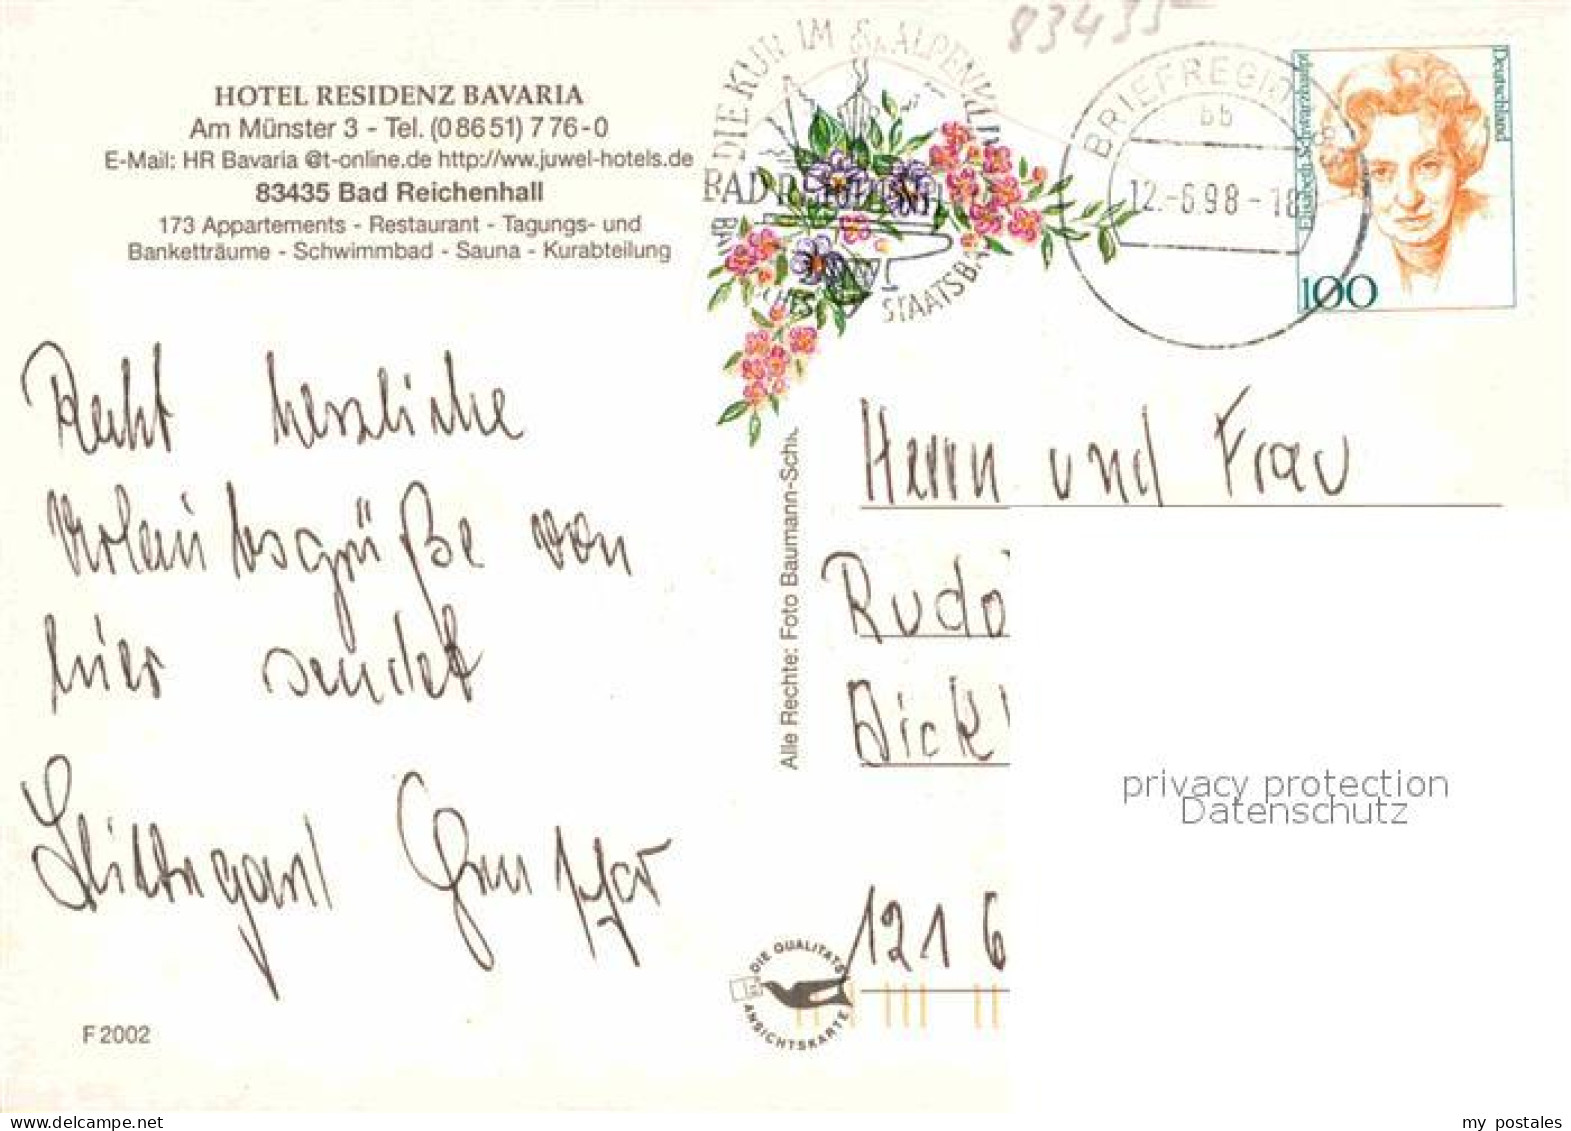 83435
HOTEL RESIDENZ BAVARIA
Am Münster 3 - Tel. (0 86 51) 7 76 - 0
E-Mail: HR Bavaria @t-online.de http://ww.juwel-hotels.de
83435 Bad Reichenhall
173 Appartements - Restaurant - Tagungs- und
Banketträume - Schwimmbad - Sauna - Kurabteilung
DIE KUR IM ALPENKLIMA
STAATSBAD
BRIEFREGION
12.-6.98-18
Elisabeth Schwarzhaupt
Deutschland
100
Recht herzliche
Urlaubsgrüße von
hier sendet
Hildegard
Herrn und Frau
Rudo
Dick
1216
Alle Rechte: Foto Baumann-Schi
DIE QUALITÄTS
ANSICHTSKARTE
F 2002
privacy protection
Datenschutz
my postales